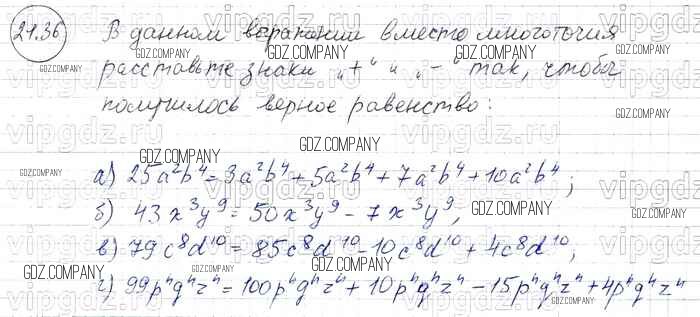 21.36 В данном выражении вместо многоточия
расставьте знаки „+“ и „-“ так, чтобы
получилось верное равенство:
а) 25a²b⁴ = 3a²b⁴ + 5a²b⁴ + 7a²b⁴ + 10a²b⁴;
б) 43x³y⁹ = 50x³y⁹ - 7x³y⁹;
в) 79c⁸d¹⁰ = 85c⁸d¹⁰ - 10c⁸d¹⁰ + 4c⁸d¹⁰;
г) 99pⁿqⁿzⁿ = 100pⁿqⁿzⁿ + 10pⁿqⁿzⁿ - 15pⁿqⁿzⁿ + 4pⁿqⁿzⁿ